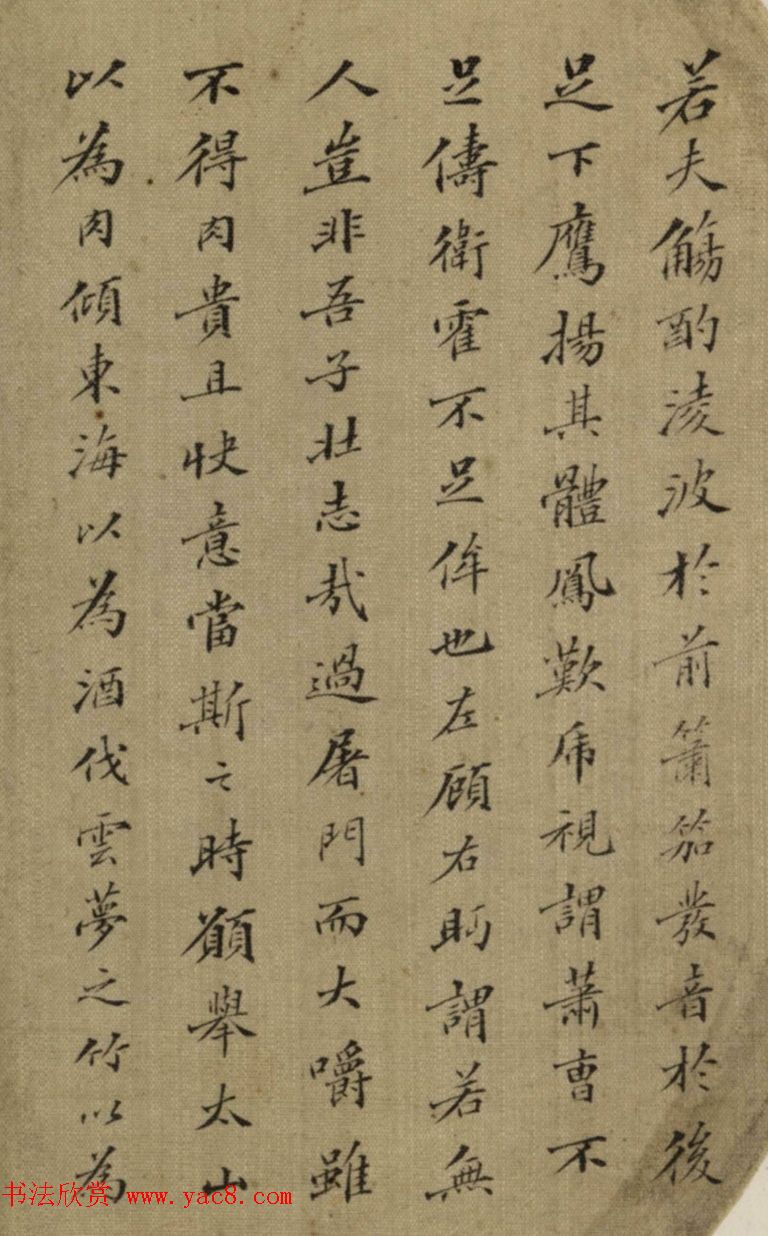 若夫觴酌淩波於前簫笳發音於後
足下鷹揚其體鳳歎虎視謂蕭曹不
足儔衛霍不足侔也左顧右眄謂若無
人豈非吾子壯志哉過屠門而大嚼雖
不得肉貴且快意當斯之時願舉太山
以為肉傾東海以為酒伐雲夢之竹以為
书法欣赏 www.yac8.com